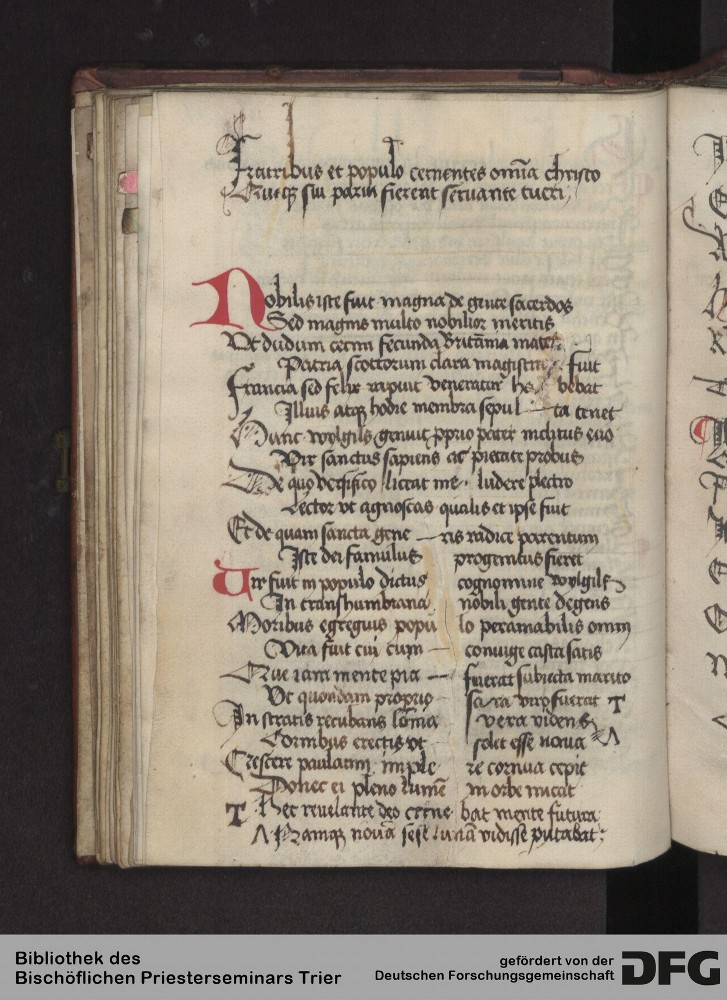 Fratribus et populo cernentes om̄ia christo
Que sui
Nobilis iste fuit magna de gente sacerdos
Sed magnis multo nobilior meritis
Vt dudum cetim fecunda Britānia mater
Patria scottorum clara magistra fuit
Francia sed felix rapuit veneratur ha bebat
Illius atq hodie membra sepul — ta tenet
Hunc wylgils genuit pprio pater inclitus euo
Vir sanctus sapiens ac pietate probus
De quo versifico liceat me ludere plectro
Lector vt agnoscas qualis et ipse fuit
Et de quam sancta gene — ris radice parentum
Iste dei famulus progenitus fieret
Vir fuit in populo dictus cognomine wylgils
In transhumbrana nobili gente degens
Moribus egregius popu lo peramabilis omni
Vita fuit cui cum — coniuge casta satis
Que iam mente pia — fuerat subiecta marito
Vt quondam proprio sara viro fuerat T
In stratis recubans vera videns
Cornibus erectis vt solet esse noua
Crescere paulatim imple re cornua cepit
Donec ei pleno lumīe in orbe micat
T Hec reuelante deo cerne bat mente futura
Namq nouā sese lunā vidisse putabat
Bibliothek des
Bischöflichen Priesterseminars Trier
gefördert von der
Deutschen Forschungsgemeinschaft
DFG